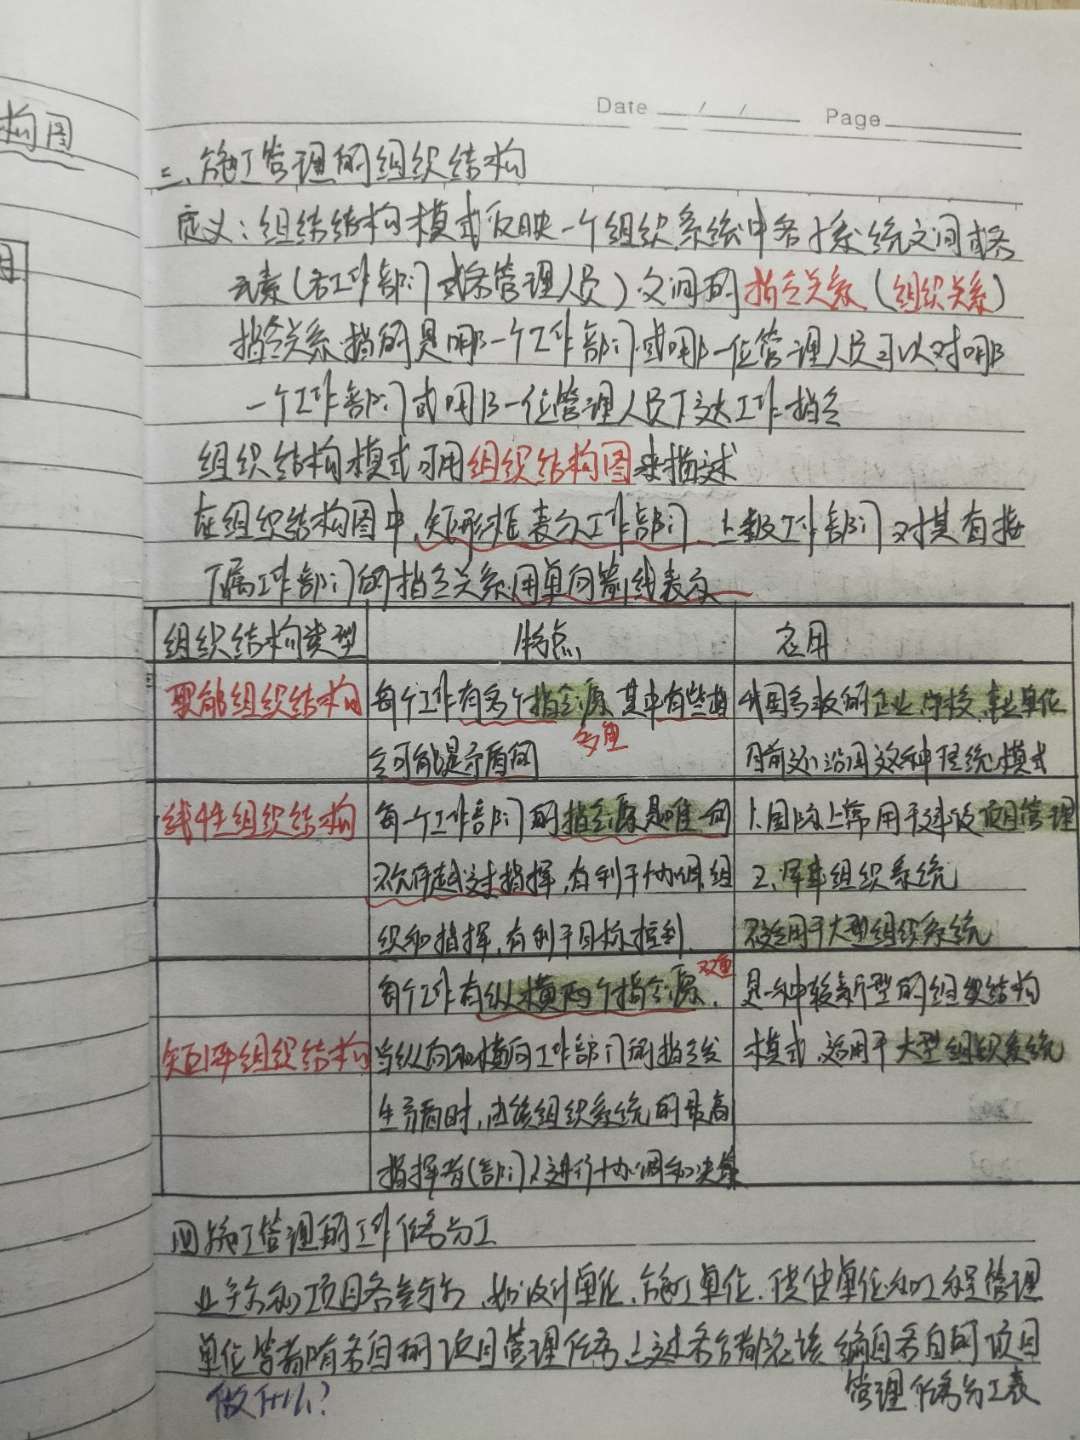 构图
Date / / Page
三、施工管理的组织结构
定义：组结结构模式反映一个组织系统中各子系统之间或各
元素（各工作部门或各管理人员）之间的指令关系（组织关系）
指令关系指的是哪一个工作部门或哪一位管理人员可以对哪
一个工作部门或哪一位管理人员下达工作指令
组织结构模式可用组织结构图来描述
在组织结构图中，矩形框表示工作部门，上级工作部门对其直接
下属工作部门的指令关系用单向箭线表示
组织结构类型 特点 应用
职能组织结构 每个工作有多个指令源，其中有些指 我国多数的企业、学校、事业单位
多重
令可能是矛盾的 目前还沿用这种传统模式
线性组织结构 每一个工作部门的指令源是唯一的 1.国际上常用于建设项目管理
不允许越过指挥，有利于协调组 2.军事组织系统
织和指挥，有利于目标控制 不适用于大型组织系统
双重
每个工作有纵横两个指令源， 是一种较新型的组织结构
矩阵组织结构 当纵向和横向工作部门的指令发 模式，适用于大型组织系统
生矛盾时，由该组织系统的最高
指挥者（部门）进行协调和决策
四施工管理的工作任务分工
业主方和项目各参与方，如设计单位、施工单位、供货单位和工程管理
单位等都有各自的项目管理任务，上述各方都应该编自各自的项目
做什么？ 管理任务分工表